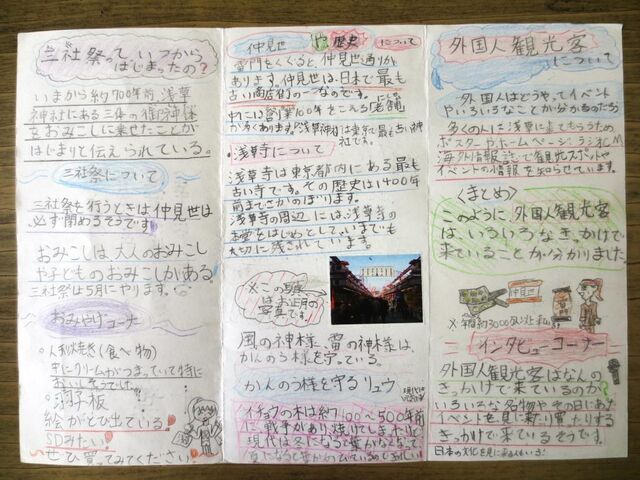 三社祭って、いつから
はじまったの?
いまから約700年前、浅草
神社にある三体の御神体
をおみこしに乗せたことが
はじまりと伝えられている。
三社祭について
三社祭を行うときは仲見世は
必ず閉めるそうです
おみこしは大人のおみこし
や子どものおみこしがある。
三社祭は5月にやります。
おみやげコーナー
・人形焼き(食べ物)
中にクリームがつまっていて特に
おいしそうでした。
・羽子板
絵がとび出ている!
SDみたい!
ぜひ買ってみてください!
仲見世や歴史について
雷門をくぐると、仲見世通りが
あります。仲見世は、日本で最も
古い商店街の一つなのです。
中には営業100年をこえる老舗
が多くあります。
・浅草寺について
浅草寺は東京都内にある最も
古い寺です。その歴史は1400年
前までさかのぼります。
浅草寺の周辺には、浅草寺の
をはじめとして、いまでも
大切に残されています。
※この写真
はお正月の
写真です。
風の神様、雷の神様は、
かんのう様を守っている。
かんのう様を守るリュウ
イチョウの木は約400~500年前
に戦争があり焼けてしまったが
現代は冬になると葉がなくなって
外国人観光客
について
外国人はどうやってイベント
やいろいろなことが分かるのだろう
多くの人に浅草に来てもらうため
ポスターやホームページ・ラジオ・CM
海外情報誌で観光スポットや
イベントの情報を知らせています。
〈まとめ〉
このように、外国人観光客
は、いろいろなきっかけで
来ていることが分かりました。
仲見世
インタビューコーナー
外国人観光客はなんの
きっかけで来ているのか?
いろいろな名物やその日にあた
イベントを見に来たり買たりする
きっかけで来ているそうです。
日本の文化を見にくる人もいる!